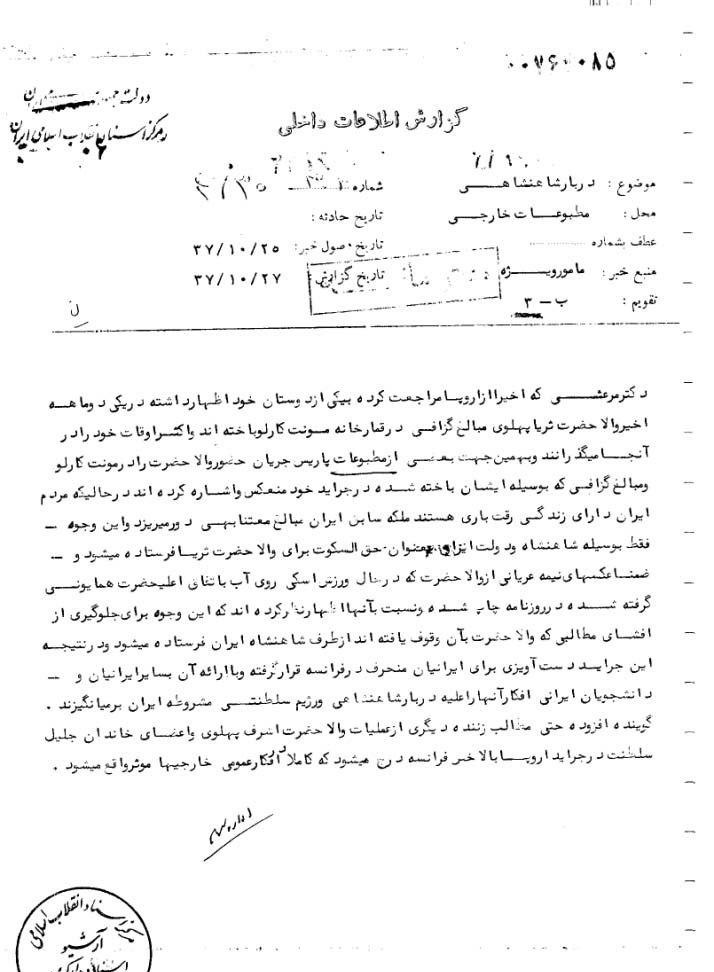 ۰۰۷۶۰۰۸۵
دولت جمهوری
مرکز اسناد انقلاب اسلامی ایران
گزارش اطلاعات داخلی
موضوع : دربار شاهنشاهی
شماره
محل : مطبوعات خارجی
تاریخ حادثه :
عطف بشماره
تاریخ وصول خبر: ۳۷/۱۰/۲۵
منبع خبر : مامور ویژه
تاریخ گزارش : ۳۷/۱۰/۲۷
تقویم : ب - ۳
دکتر مرعشی که اخیرا از اروپا مراجعت کرده بیکی از دوستان خود اظهار داشته در یکی دو ماهه
اخیر والا حضرت ثریا پهلوی مبالغ گزافی در قمارخانه مونت کارلو باخته اند و اکثر اوقات خود را در
آنجا میگذرانند و بهمین جهت بعضی از مطبوعات پاریس جریان حضور والا حضرت را در مونت کارلو
و مبالغ گزافی که بوسیله ایشان باخته شده در جراید خود منعکس و اشاره کرده اند در حالیکه مردم
ایران دارای زندگی رقت باری هستند ملکه سابق ایران مبالغ معتنابهی دور میریزد و این وجوه -
فقط بوسیله شاهنشاه و دولت ایران بعنوان حق السکوت برای والا حضرت ثریا فرستاده میشود و -
ضمنا عکسهای نیمه عریانی از والا حضرت که در حال ورزش اسکی روی آب باتفاق اعلیحضرت همایونی
گرفته شده در روزنامه چاپ شده و نسبت بآنها اظهار نظر کرده اند که این وجوه برای جلوگیری از
افشای مطالبی که والا حضرت بآن وقوف یافته اند از طرف شاهنشاه ایران فرستاده میشود و در نتیجه
این جراید دست آویزی برای ایرانیان منحرف در فرانسه قرار گرفته و با ارائه آن بسایر ایرانیان و -
دانشجویان ایرانی افکار آنها را علیه دربار شاهنشاهی و رژیم سلطنتی مشروطه ایران برمیانگیزند .
گوینده افزوده حتی مطالب زننده دیگری از عملیات والا حضرت اشرف پهلوی و اعضای خاندان جلیل
سلطنت در جراید اروپا بالاخر فرانسه درج میشود که کاملا در افکار عمومی خارجیها موثر واقع میشود .
مرکز اسناد انقلاب اسلامی
آرشیو